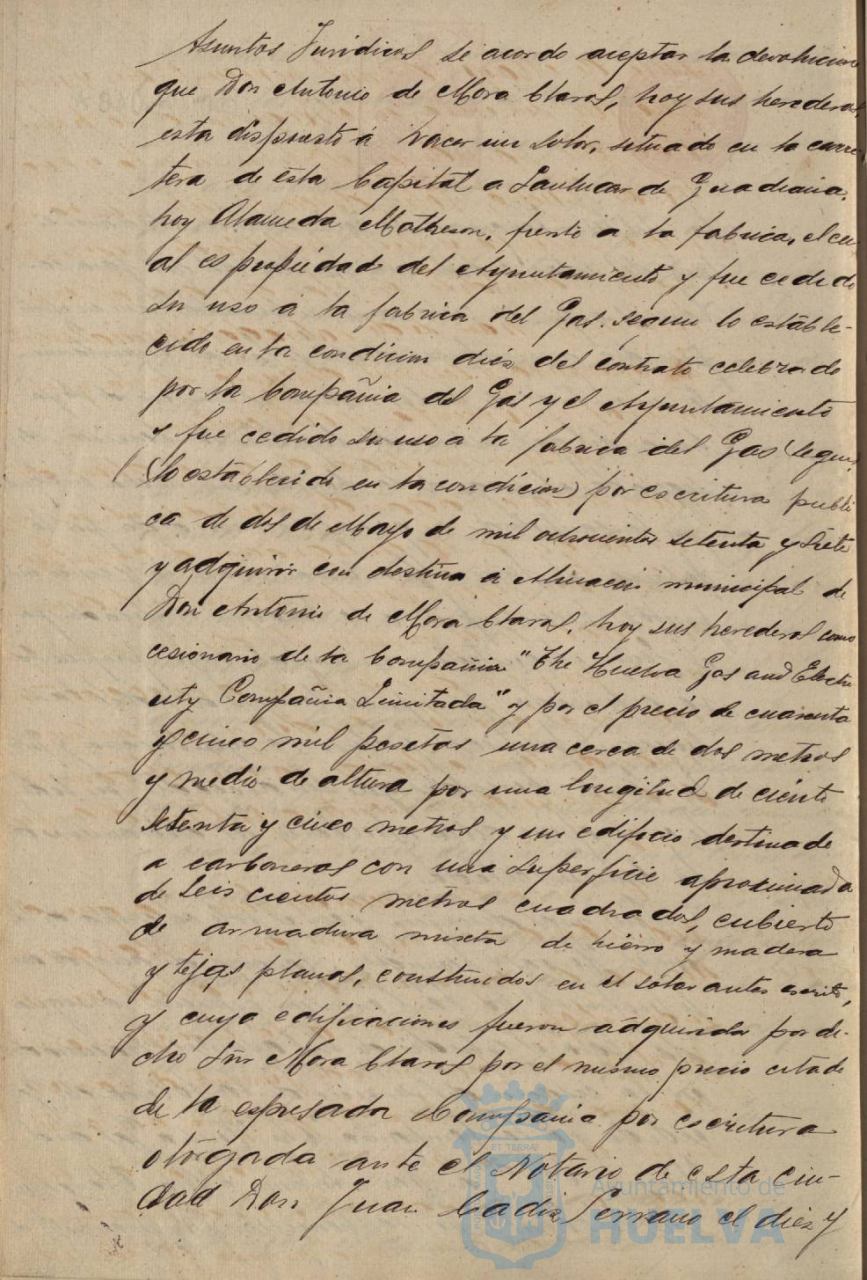 Asuntos Juridicos se acordo aceptar la devolucion
que Don Antonio de Mora Claros, hoy sus herederos
esta dispuesto á hacer un solar, situado en la carre
tera de ésta Capital a Sanlucar de Guadiana,
hoy Alameda Matheson, frente a la fabrica, el cu
al es propiedad del Ayuntamiento y fue cedido
su uso a la fabrica del Gas. segun lo estable-
cido en la condicion diez del contrato celebrado
por la Compañia del Gas y el Ayuntamiento
y fue cedido su uso a la fabrica del Gas (segun
(lo establecido en la condicion) por escritura publi
ca de dos de Mayo de mil ochocientos setenta y siete
y adquirir con destino á Almacen municipal de
Don Antonio de Mora Claros, hoy sus herederos como
cesionario de la Compañia "The Huelva Gas and Electri
city Compañia Limitada" y por el precio de cuarenta
y cinco mil pesetas una cerca de dos metros
y medio de altura por una longitud de ciento
setenta y cinco metros y un edificio destinado
a carboneras con una superficie aproximada
de seis cientos metros cuadrados, cubierto
de armadura mixta de hierro y madera
y tejas planas, construidos en el solar antes escrito,
y cuya edificaciones fueron adquirida por di-
cho Sñr Mora Claros por el mismo precio citado
de la espresada Compañia por escritura
otorgada ante el Notario de esta ciu-
dad Don Juan Cadiz Serrano el diez y
Ayuntamiento de
HUELVA